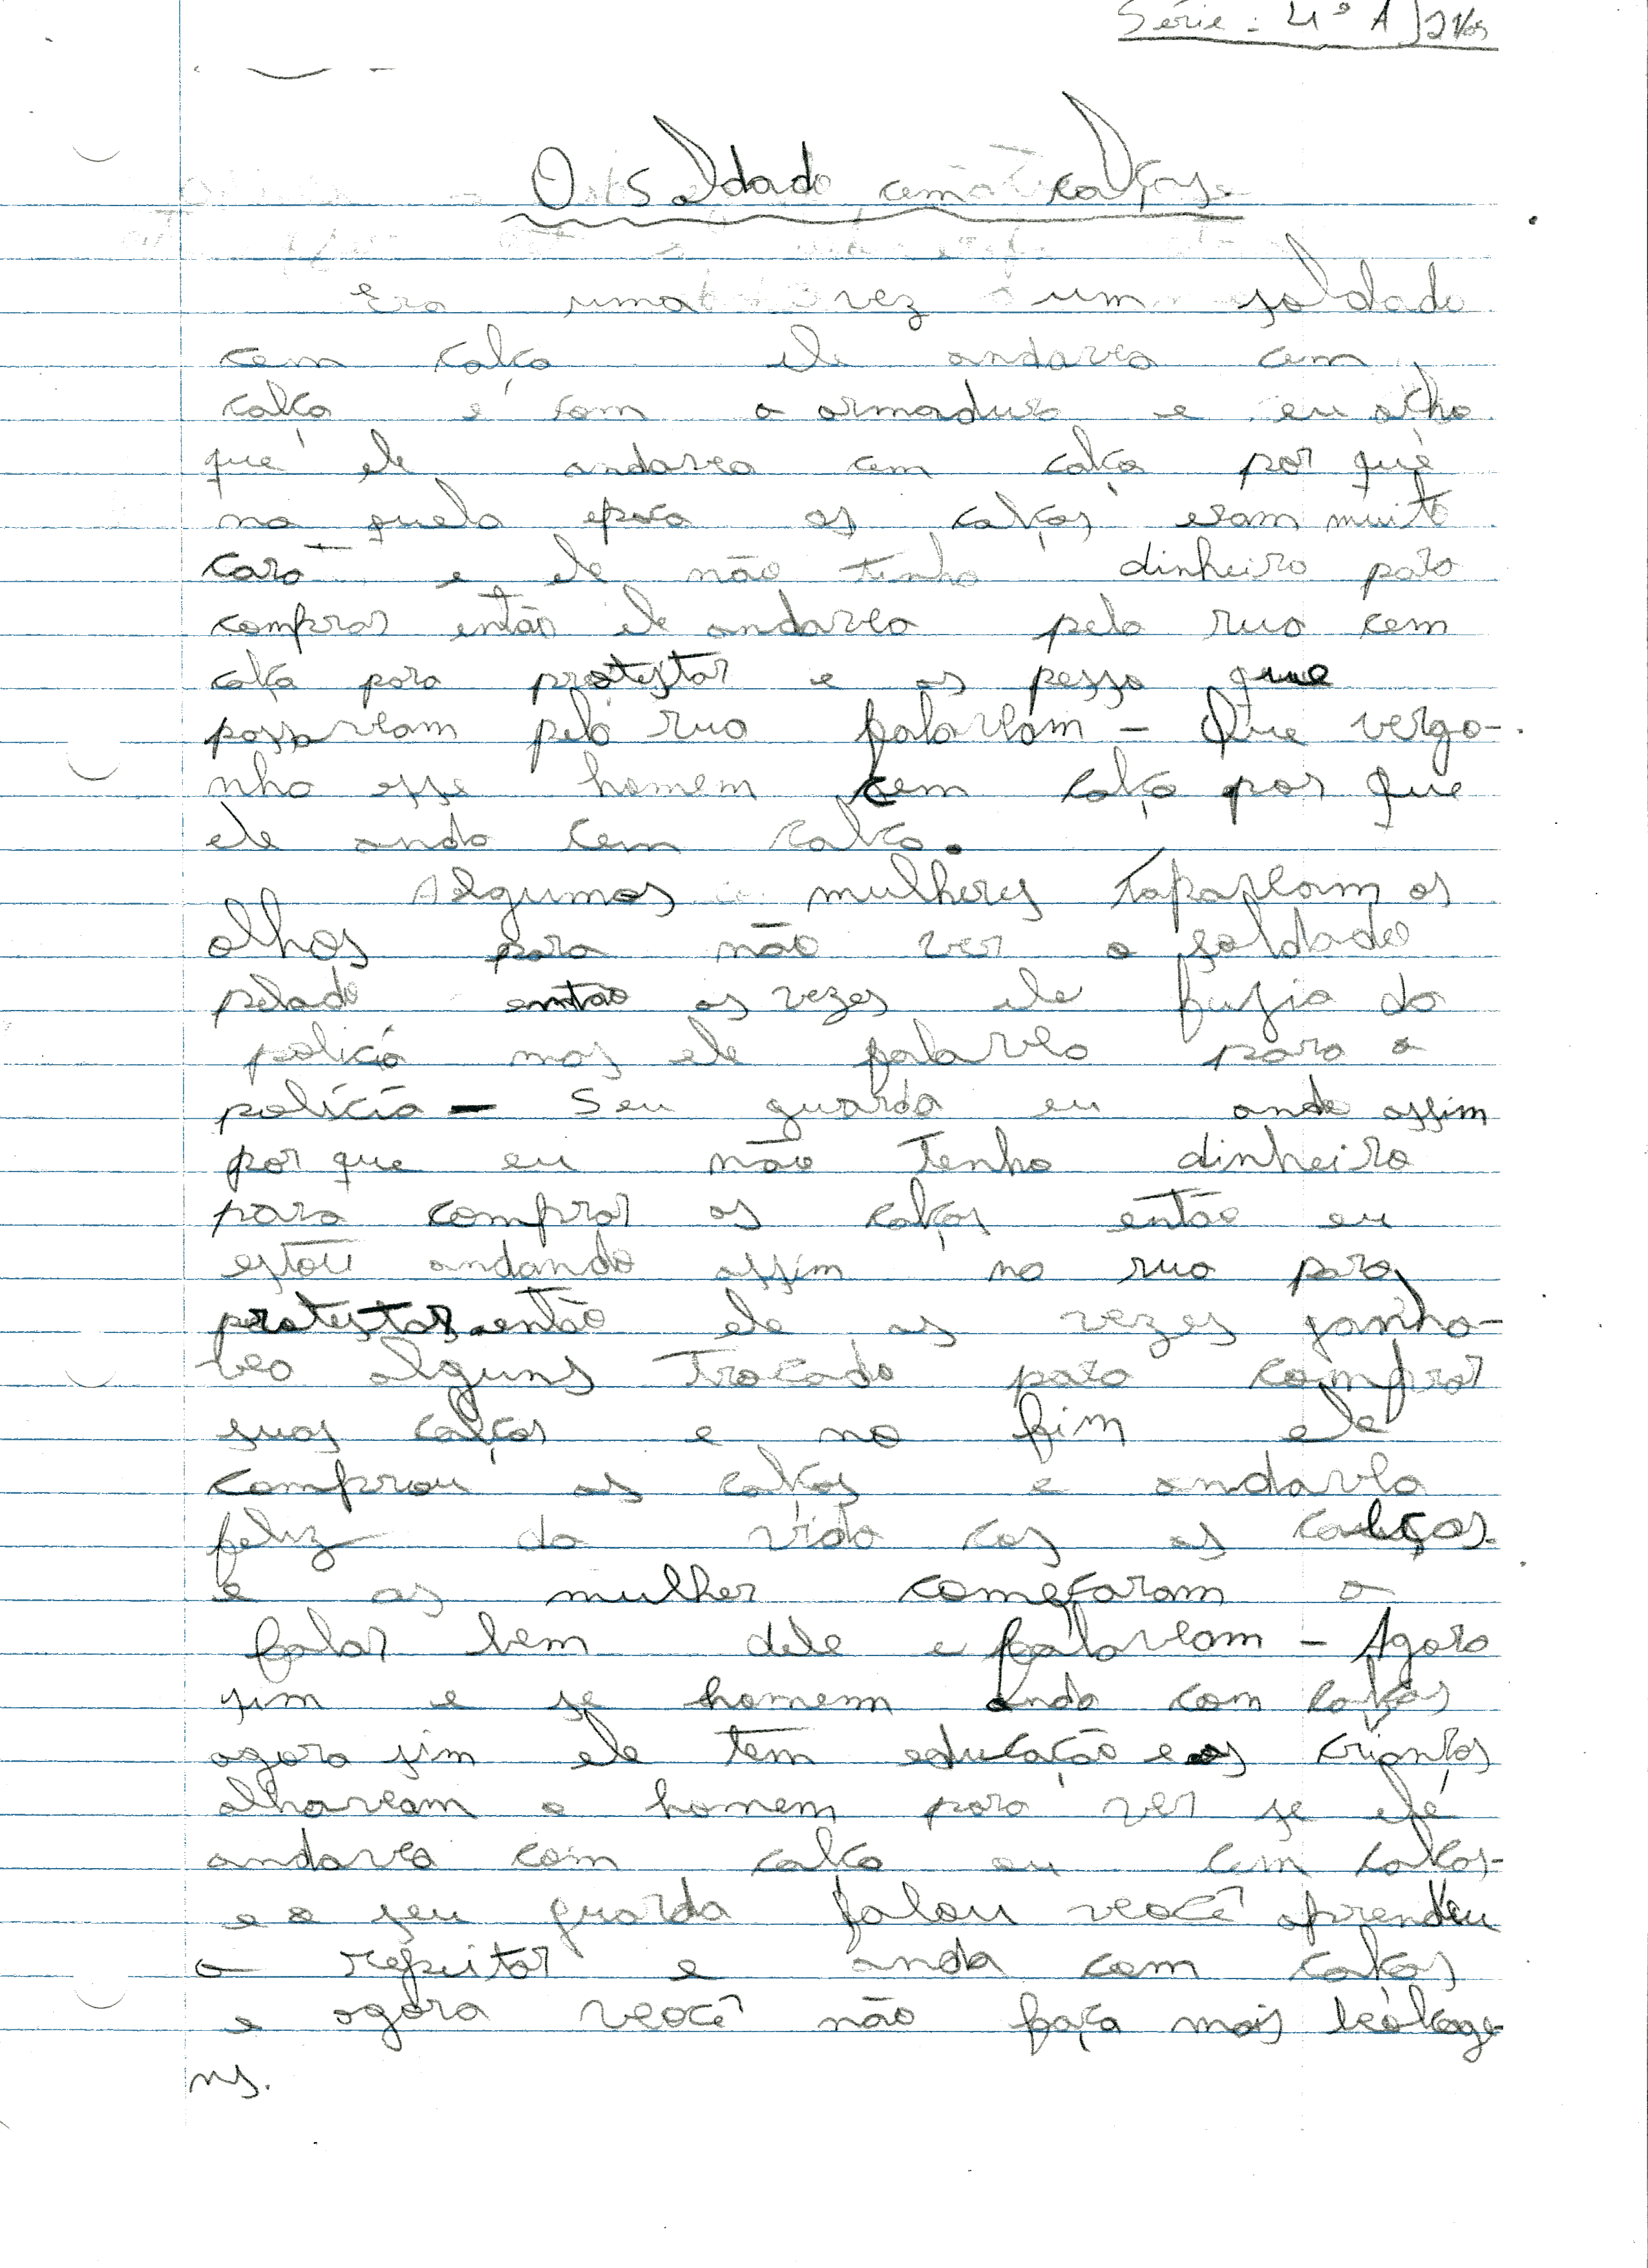 Série: 4º A
O soldado cem calças.
Era uma vez um soldado
cem calça ele andava cem
calça e com a armadura e eu acho
que ele andava cem calça por que
na quela epoca as calças eram muito
caro e ele não tinha dinheiro para
comprar então ele andava pela rua cem
calça para protestar e as pesso que
passavam pela rua falavam - Que vergo-
nha esse homem cem calça por que
ele anda cem calça.
Algumas mulheres tapavam os
olhos para não ver o soldado
pelado então as vezes ele fugia da
policia mas ele falava para a
polícia - Seu guarda eu ando assim
por que eu não tenho dinheiro
para comprar as calças então eu
estou andando assim na rua para
protestar então ele as vezes ganha-
va alguns trocado para comprar
suas calças e no fim ele
comprou as calças e andava
feliz da vida cas as calças.
e as mulher começaram a
falar bem dele e falavam - Agora
sim e se homem anda com calças
agora sim ele tem educação e as crianças
olhavam o homem para ver se ele
andava com calça ou cem calças
e o seu guarda falou você aprendeu
a repeitar e anda com calças
e agora você não faça mais